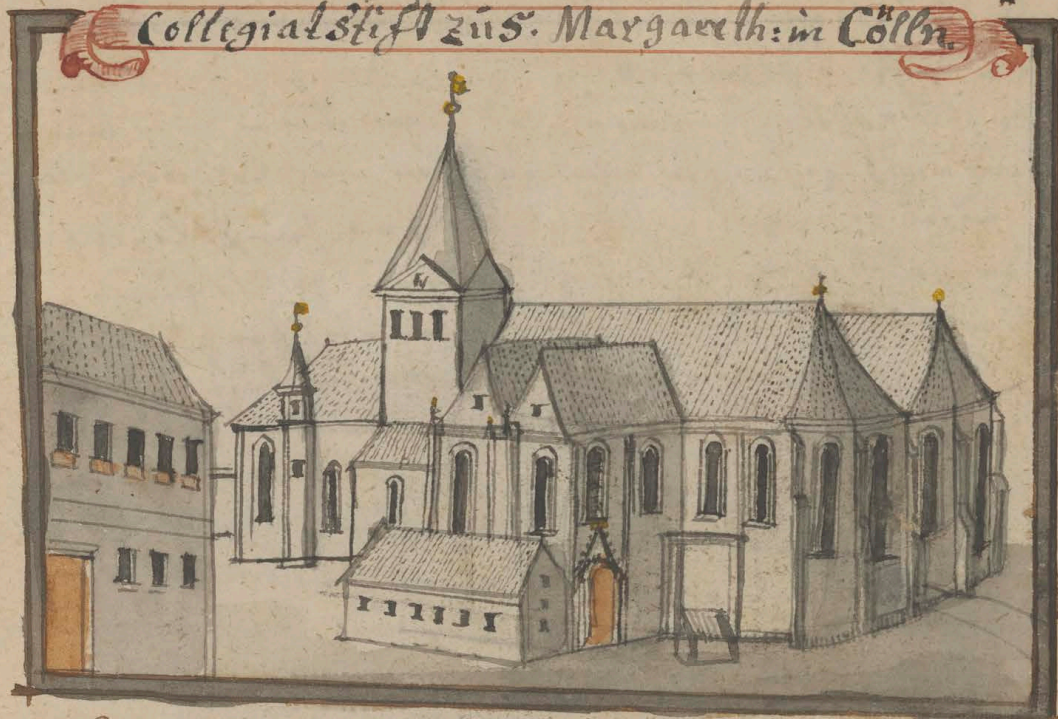 Collegialstift zu S. Margareth: in Cölln.